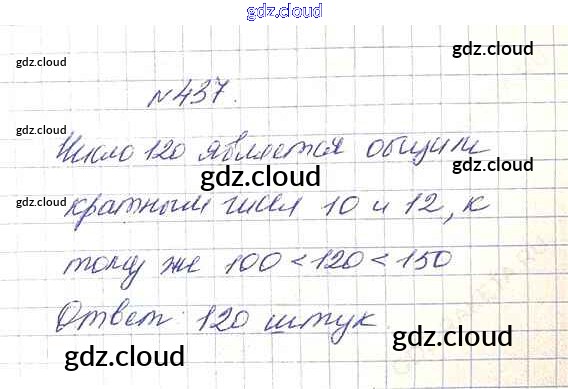 gdz.cloud
gdz.cloud gdz.cloud
№437.
gdz.cloud
Число 120 является общим
gdz.cloud gdz.cloud
кратным чисел 10 и 12, к
gdz.cloud
тому же 100 < 120 < 150
Ответ: 120 штук
gdz.cloud gdz.cloud